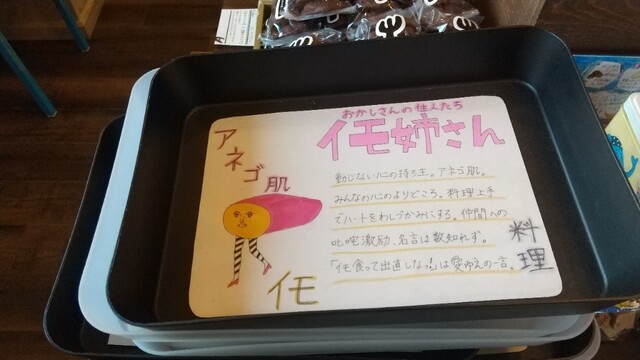 おかしさんの住人たち
イモ姉さん
アネゴ肌
動じない心の持ち主。アネゴ肌。
みんなの心のよりどころ。料理上手
でハートをわしづかみにする。仲間への
叱咤激励、名言は数知れず。
「イモ食って出直しなっ!」は愛ゆえの一言。
料理
イモ